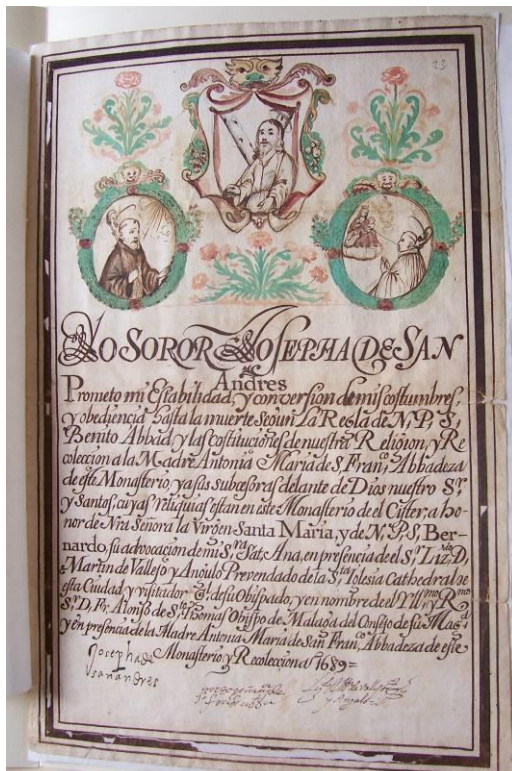 23
YO SOROR JOSEPHA DE SAN
Andres
Prometo mi Estabilidad, y conversion de mis costumbres,
y obediencia hasta la muerte segun La Regla de N, P, S,
Benito Abbad, y las costituciones de nuestra Religion, y Re
coleccion a la Madre Antonia Maria de S. Franco, Abbadeza
de este Monasterio, ya sus subcesoras delante de Dios nuestro Sr,
y Santos, cuyas reliquias estan en este Monasterio de el Cister, a ho-
nor de Nra Señora la Virgen Santa Maria, y de N, P, S, Ber-
nardo, su advocacion de mi Sra Sta, Ana, en presencia de el Sr, Lizdo, D,
Martin de Vallejo y Angulo Prevendado de la Sta, Iglesia Cathedral de
esta Ciudad, y visitador de su Obispado, y en nombre de el Yllmo, y Rmo
Sr, D, Fr, Alonso de Sto, Thomas Obispo de Malaga del Consejo de su Magd
y en presencia de la Madre Antonia Maria de San Franco, Abbadeza de este
Monasterio, y Recoleccion a 1689=
Josepha de
san andres
y Angulo